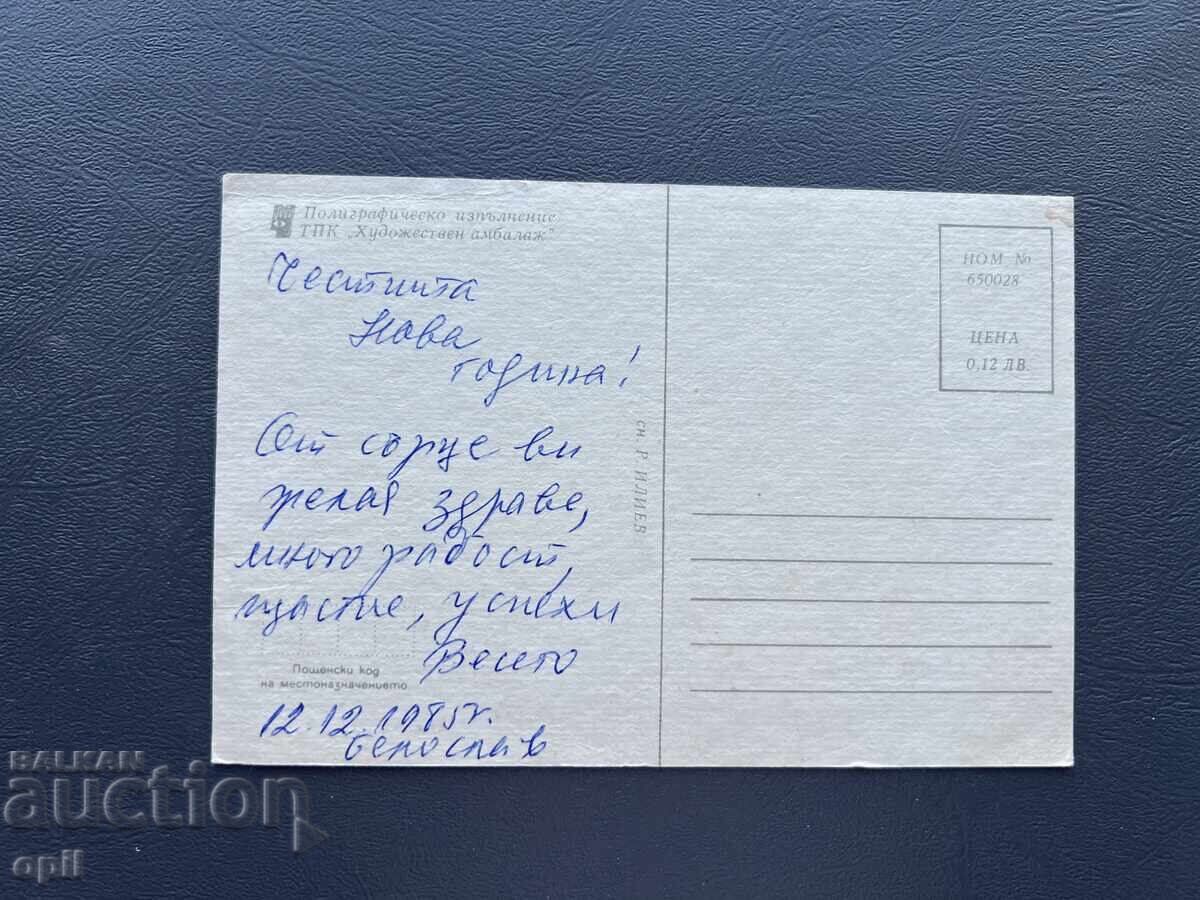 Полиграфическо изпълнение
ТПК „Художествен амбалаж"
Честита
Нова
година!
От сърце ви
желая здраве,
много радост,
щастие, успехи
Пощенски код
на местоназначението
12.12.1985г.
Белослав
сн. Р. ИЛИЕВ
НОМ №
650028
ЦЕНА
0,12 ЛВ.
BALKAN
auction
opil